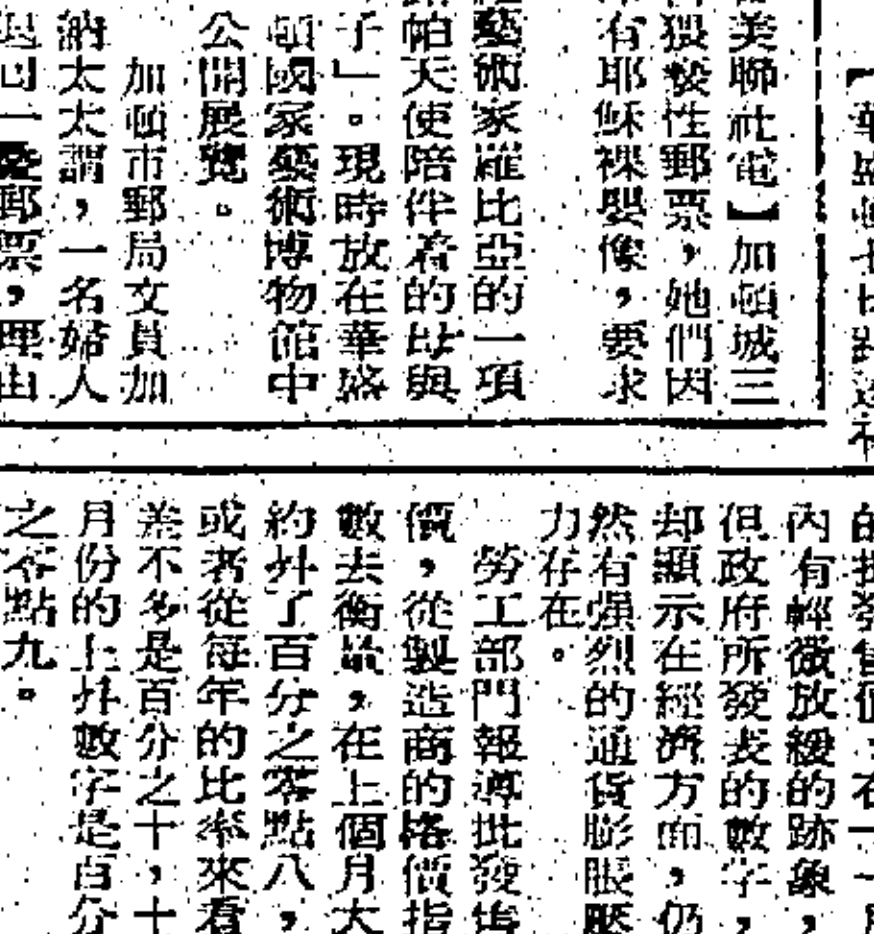 美聯社電】加頓城三
猥褻性郵票，她們因
有耶穌裸嬰像，要求
藝術家羅比亞的一項
帕天使陪伴着的母與
子」。現時放在華盛
頓國家藝術博物館中
公開展覽。
加頓市郵局文員加
納太太謂，一名婦人
退回一疊郵票，理由
內有輕微放緩的跡象，
但政府所發表的數字，
却顯示在經濟方面，仍
然有强烈的通貨膨脹壓
力存在。
勞工部門報導批發售
價，從製造商的格價指
數去衡量，在上個月大
約升了百分之零點八，
或者從每年的比率來看
差不多是百分之十，十
月份的上升數字是百分
之零點九。